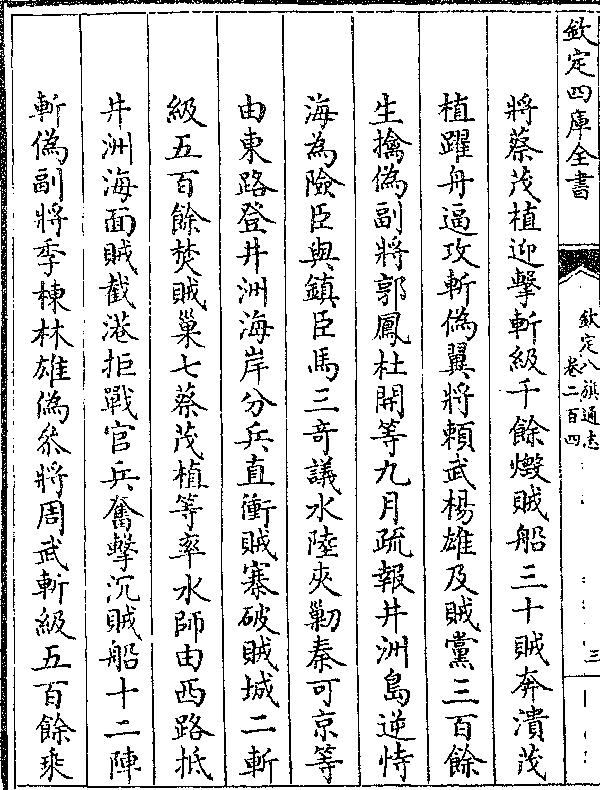 欽定四庫全書
欽定八旗通志
卷二百四
三
將蔡茂植迎擊斬級千餘燬賊船三十賊奔潰茂
植躍舟逼攻斬偽翼將賴武楊雄及賊黨三百餘
生擒偽副將郭鳳杜開等九月疏報井洲島逆恃
海為險臣與鎮臣馬三奇議水陸夾勦秦可京等
由東路登井洲海岸分兵直衝賊寨破賊城二斬
級五百餘焚賊巢七蔡茂植等率水師由西路抵
井洲海面賊截港拒戰官兵奮擊沉賊船十二陣
斬偽副將季棟林雄偽叅將周武斬級五百餘乘